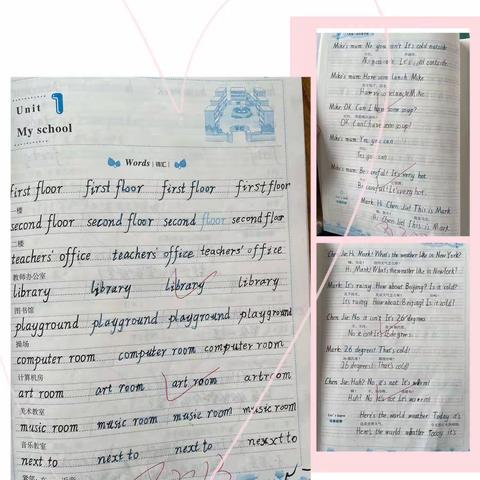 Unit 1
My school
Words 词汇
first floor first floor first floor first floor
一楼
second floor second floor second floor second floor
二楼
teachers' office teachers' office teachers' office
教师办公室
library library library library
图书馆
playground playground playground playground
操场
computer room computer room computer room
计算机房
art room art room art room artroom
美术教室
music room music room music room music room
音乐教室
next to next to next to nexxt to
Mike's mum: No, you can't. It's cold outside.
No, you can't. It's cold outside.
Mike's mum: Have some lunch, Mike.
Mike: OK. Can I have some soup?
OK. Can I have some soup?
Mike's mum: Yes, you can.
Yes, you can.
Mike's mum: Be careful! It's very hot.
Be careful! It's very hot.
Mark: Hi, Chen Jie! This is Mark.
Hi, Chen Jie! This is Mark.
Chen Jie: Hi, Mark! What's the weather like in New York?
Hi, Mark! What's the weather like in NewYork?
Mark: It's rainy. How about Beijing? Is it cold?
It's rainy. How about Beijing? Is it cold?
Chen Jie: No, it isn't. It's 26 degrees.
No, it isn't. It's 26 degrees.
Mark: 26 degrees! That's cold!
26 degrees! That's cold!
Chen Jie: Huh? No, it's not. It's warm!
Huh? No, it's not. It's warm!
Here's the world weather. Today it's
Here's the world weather. Today it's